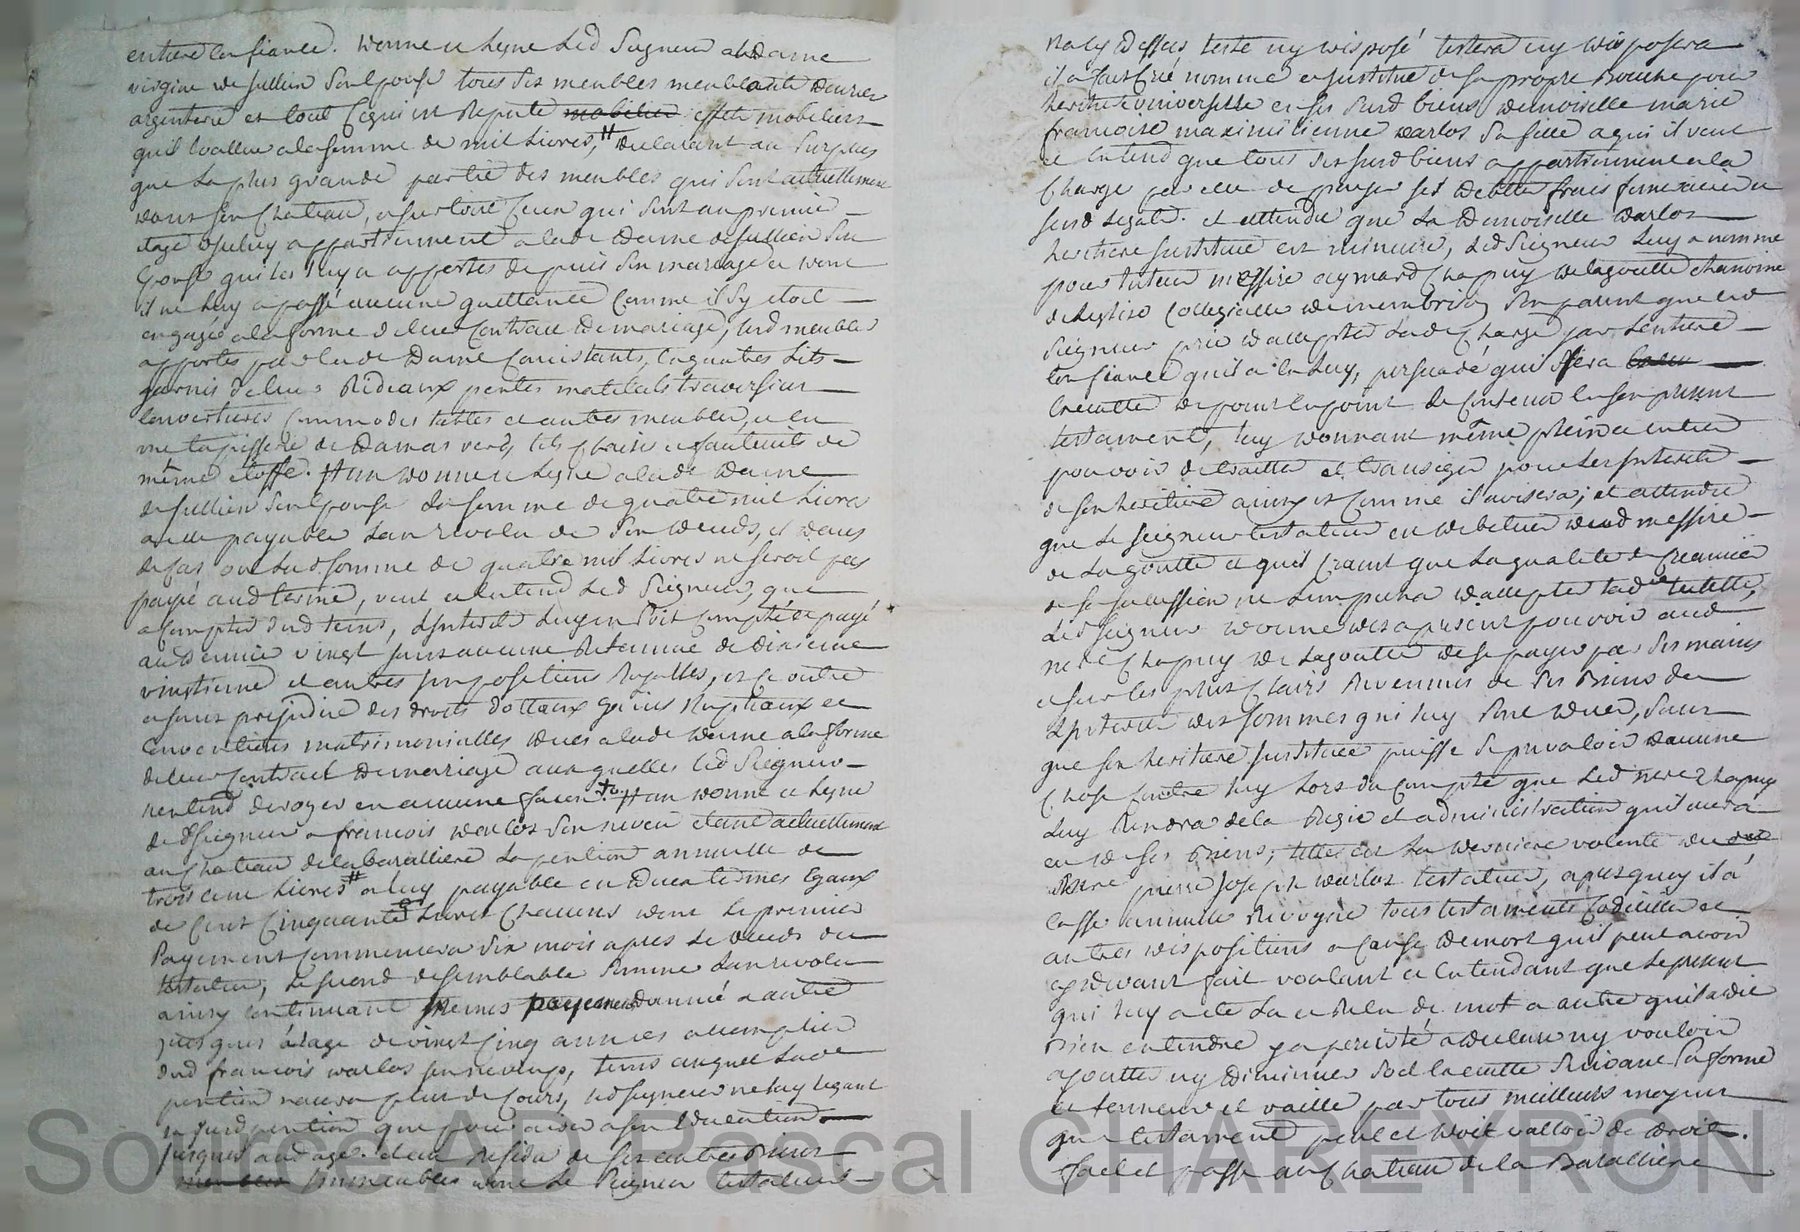 entiere confiance. Donne et legue led Seigneur a Dame
virginie de Jullien son Epouse tous ses meubles meublants denrées
argenterie et tout ce qui est reputé mobilier effets mobiliers
qu'il evallue a la somme de mil Livres, # declarant au surplus
que la plus grande partie des meubles qui sont actuellement
dans son Chateau, et surtout Ceux qui sont au premier
étage d'iceluy appartiennent a lade Dame de Jullien son
Epouse qui les luy a apportés depuis son mariage et dont
il ne luy a passé aucune quittance Comme il s'y etoit
engagé a la forme de leur Contract de mariage, lesd meubles
apportés par lade Dame Consistants, en quatres lits
garnis de leurs Rideaux pentes matelats traversier
Couvertures Commodes tables et autres meubles, et en
une tapisserie de Damas verd, lits Chaises et fauteuils de
même étoffe. # an Donne et legue a lade Dame
de Jullien son Epouse la somme de quatre mil Livres
a elle payable l'an revolu de son decés, et dans
le cas ou lad somme de quatre mil Livres ne seroit pas
payé aud terme, veut et entend led Seigneur, que
a Compter dud tems, l'interest luy en soit Compté et payé
au Denier vingt sans aucune Retenue de dixieme
vingtieme et autres impositions Royalles, et ce outre
et sans prejudice des droits dottaux gains Nuptiaux et
Conventions matrimonialles dues a lade Dame a la forme
de leur Contract de mariage auxquelles led Seigneur
n'entend deroger en aucune facon. # an Donne et legue
led Seigneur a francois Darlos son neveu etant actuellement
au Chateau de la baralliere la pention annuelle de
trois cent Livres # a luy payable en deux termes Egaux
de Cent Cinquante Livres Chacuns dont le premier
Payement Commencera six mois apres le decés du
testateur; le second de semblable somme l'an revolu
ainsy continuant mêmes payemens d'année a autre
jusques a l'age de vingt Cinq années accomplies
dud francois Darlos son neveu, tems auquel lade
pention n'aura plus de Cours, led seigneur ne luy leguant
lad pention que pour aider a son Education
jusques aud age. et au Residu de ses autres Biens
meubles Immeubles dont le Seigneur testateur
n'a cy dessus testé ny disposé testera ny disposera
il a fait Créé nommé et institué de sa propre Bouche pour
heritiere universelle en ses susd biens demoiselle marie
francoise maximilienne Darlos sa fille a qui il veut
et Entend que tous ses susd biens appartiennent a la
Charge par elle de payer ses dettes frais funeraires et
susd legats. et attendu que la Demoiselle Darlos
heritiere instituée est mineure, led Seigneur luy a nommé
pour tuteur messire aymard Chapuy de lagoutte chanoine
de l'eglise Collegialle de montbrison son parent que led
Seigneur prie d'accepter lade Charge par l'entiere
Confiance qu'il a en luy, persuadé qu'il fera
Executter de point en point le Contenu en son present
testament, luy donnant même plein et entier
pouvoir de traitter et transiger pour les interests
de son heritiere ainsy et Comme il avisera; et attendu
que le seigneur testateur en debiteur dud messire
de Lagoutte et qu'il craint que la qualité de Creancier
de sa succession ne l'empecha d'accepter lade tutelle,
led Seigneur donne des a present pouvoir aud
mre Chapuy de Lagoutte de se payer par ses mains
et sur les plus Clairs Revenus de ses Biens de
l'interest des sommes qui luy sont dues, sans
que son heritiere instituée puisse se prevaloir d'aucune
Chose Contre luy lors du Compte que led mre Chapuy
luy Rendra de la Regie et administration qu'il aura
eu de ses Biens; telle est la derniere volonté du
sieur pierre joseph Darlos testateur, apres quoy il a
Cassé annullé Revoqué tous testaments Codicilles et
autres dispositions a Cause de mort qu'il peut avoir
cy devant fait voulant et Entendant que le present
qui luy a eté lu et relu de mot a autre qu'il a dit
Bien entendre y a persisté a declaré ny vouloir
ajoutter ny diminuer soit Executté suivant sa forme
et tenneur et vaille par tous meilleurs moyens
que testament peut et doit valloir de droit.
fait et passé au Chateau de la Baralliere
Source AD Pascal CHAREYRON